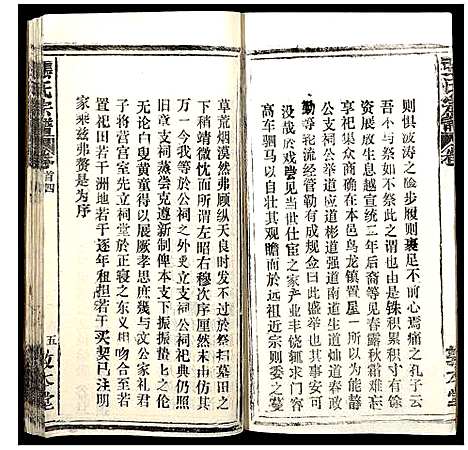 則惧波涛之險步履則裹足不前心焉痛之孔子云
吾不与祭如不祭此之谓也由是铢积累积寸积
资展放生息越宣统二年后裔等见春露秋霜难无
享祀渠众商确在本邑乌龙镇置屋一所以为妥
公支祠公举道生应道彬道强道南道生道灿道春政
等輪流经管勒有成规佥曰此盛举也其事安可
没战於戏嘗见当世仕宦之家产业丰饶辄求门容
高车驷马以自壮其观瞻而于远祖近宗则委之蔓
草荒烟漠然弗顾纵天良时发不过於祭扫墓田之
下稍靖微忱而所谓左昭右穆次序厘然未由万
万一今我于公祠之外更立支祠公祠祀典仍照
旧章支祠蒸尝克遵新制俾本支下凡之伦
无论白叟黄童得以展厥孝思庶幾与文公家礼君
子将营宫室先立祠堂於正寝之东义相吻合至若
置祀田若干洲地若干逐年租担若干买契已注明
家乘兹弗赘是为序
龚氏宗谱
卷首四
五
敦本堂